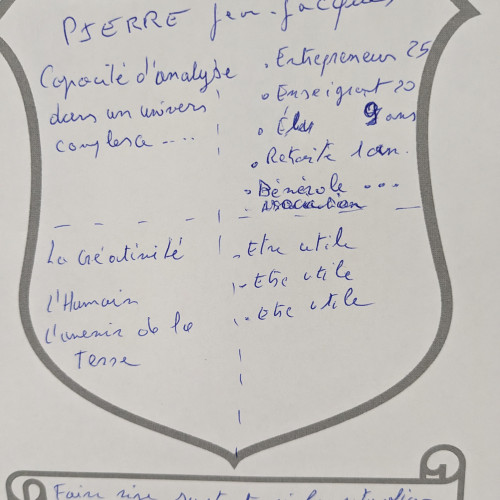 PIERRE Jean-Jacques
Capacité d'analyse
dans un univers
complexe ....
• Entrepreneur 25
• Enseignant 20
• Élu 9 ans
• Retraite 1 an.
• Bénévole ...
association
La créativité
L'Humain
L'avenir de la
Terre
• Etre utile
• Etre utile
• Etre utile
Faire rire